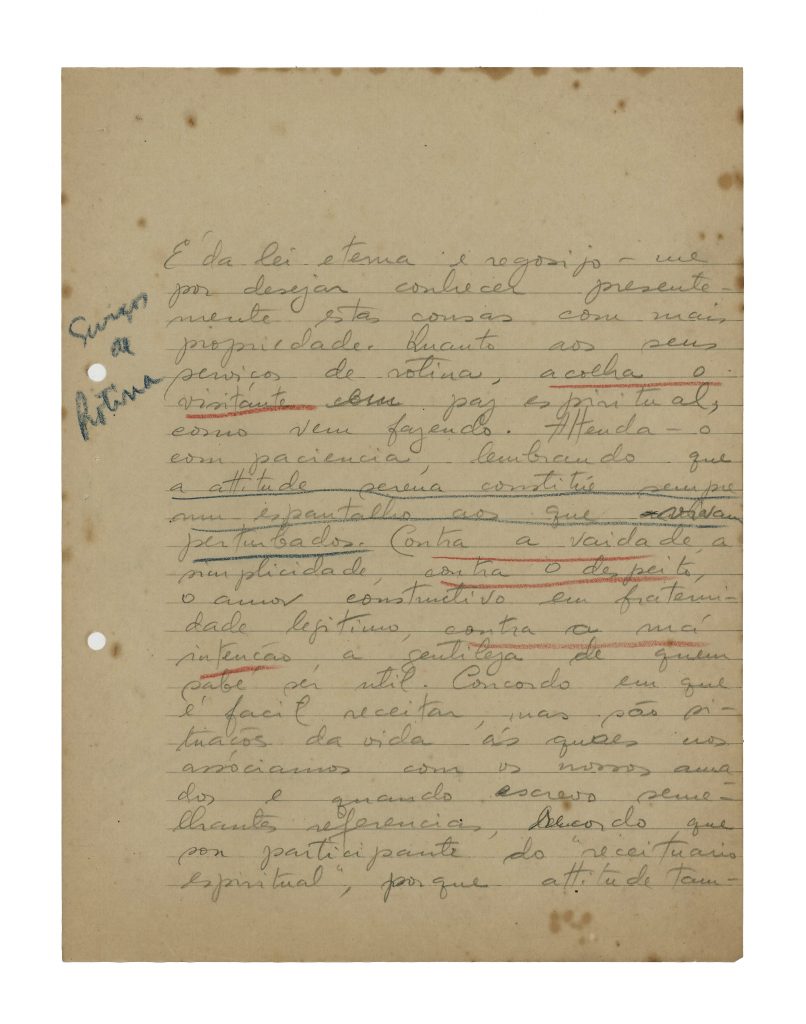 Serviços
de
Rotina
E' da lei eterna e regosijo-me
por desejar conhecer presente-
mente estas cousas com mais
propriedade. Quanto aos seus
serviços de rotina, acolha o
visitante em paz espiritual,
como vem fazendo. Attenda-o
com paciencia, lembrando que
a attitude serena constitúe sempre
um espantalho aos que vivam
perturbados. Contra a vaidade, a
simplicidade, contra o despeito,
o amor constructivo em fraterni-
dade legitimo, contra a má
intenção, a gentileza de quem
sabe ser util. Concordo em que
é facil receitar, mas são si-
tuações da vida ás quaes nos
associamos com os nossos ama
dos e quando escrevo seme-
lhantes referencias, recordo que
sou participante do "receituario
espiritual", porque attitude tam-